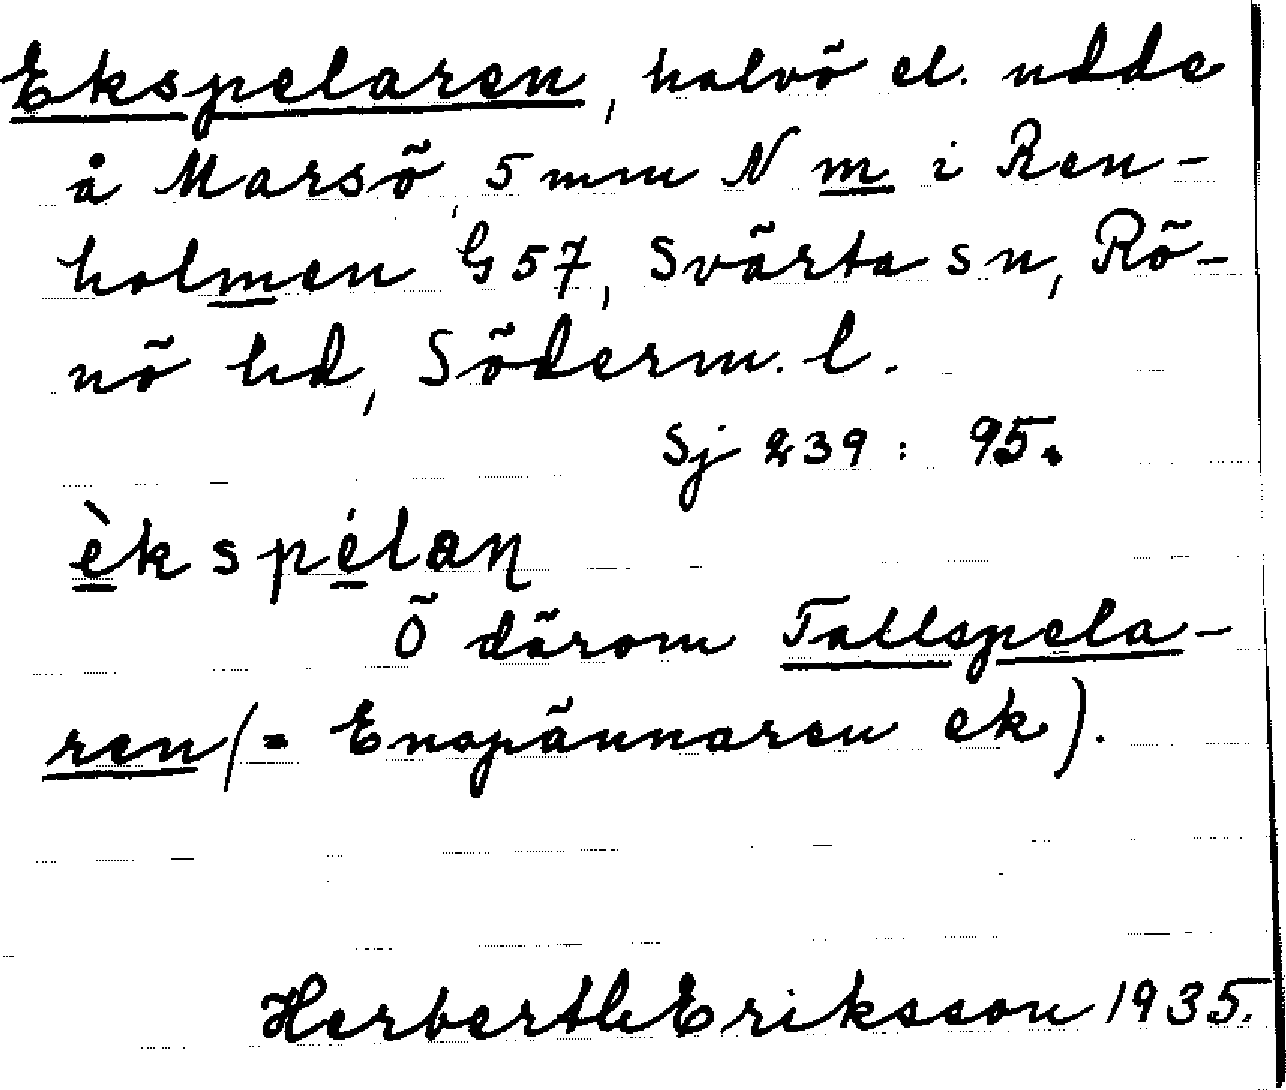 Ekspelaren, halvö el. udde
å Marsö, 5 mm N m i Ren-
holmen G 57, Svärta sn, Rö-
nö hd, Söderm. l.
Sj 239: 95.
èkspélaṇ
Ö därom Tallspela-
ren (= Enspännaren ek).
Herberth Eriksson 1935.